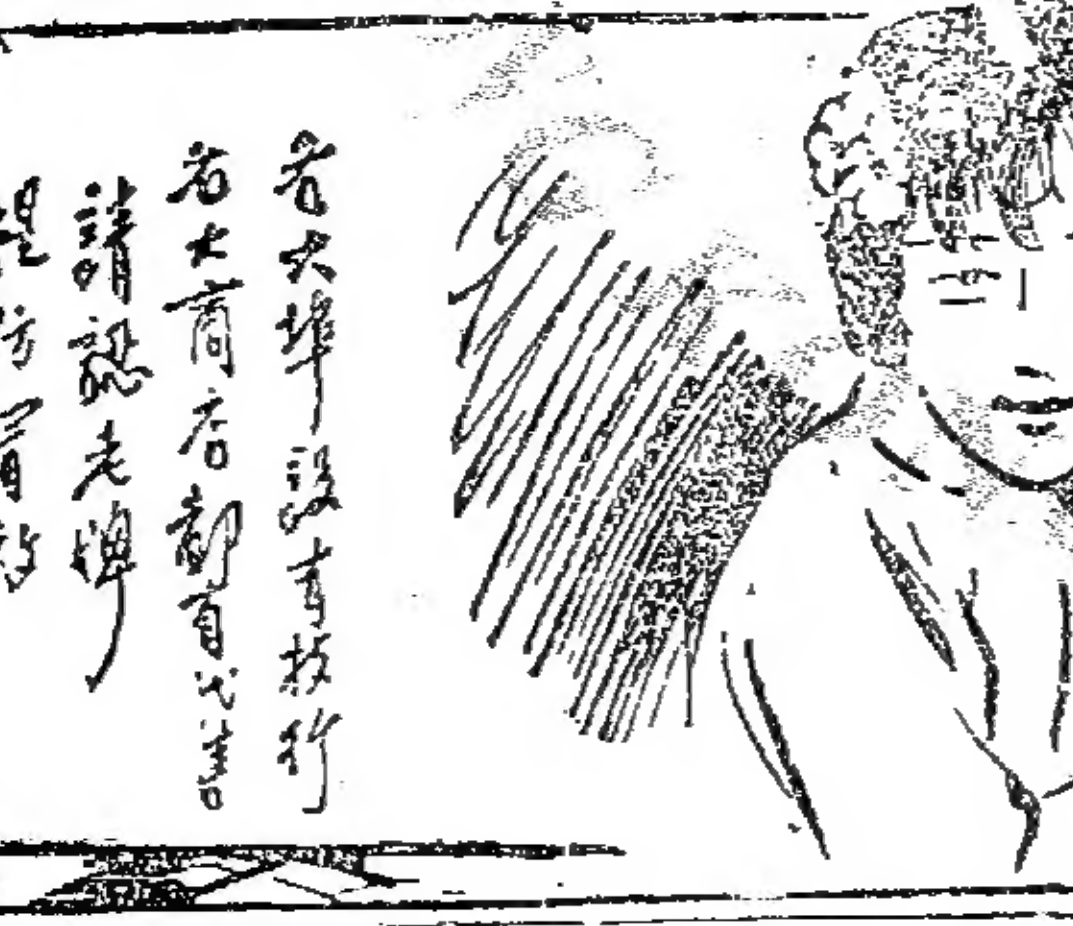 各大埠設有枝行
各大商店都有代售
請認老牌